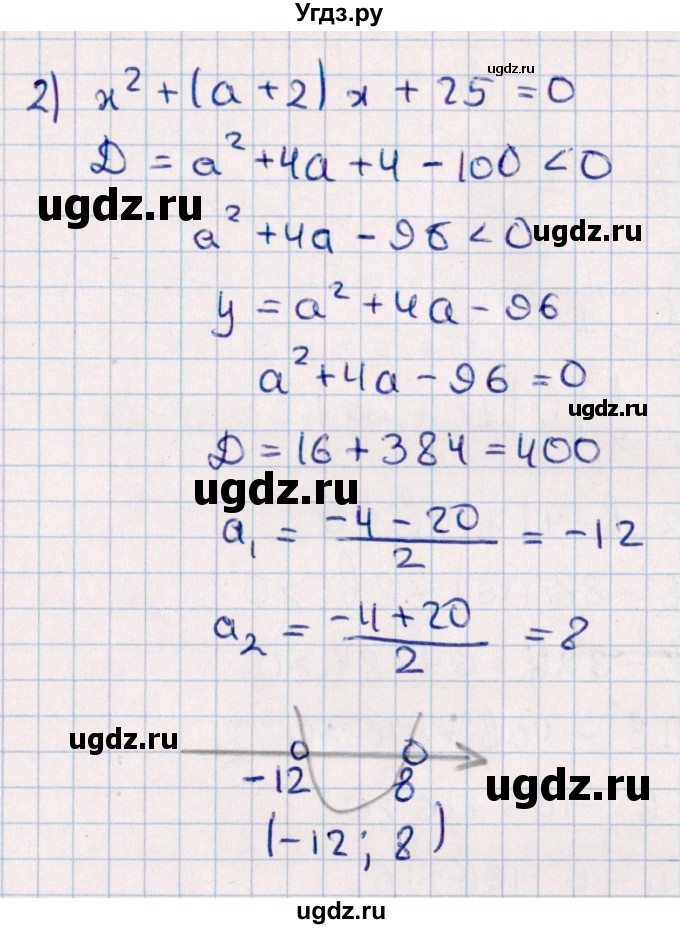 Угдз.ру
ugdz.ru
2) x² + (a + 2) x + 25 = 0
Д = a² + 4a + 4 - 100 < 0
ugdz.ru
a² + 4a - 96 < 0
ugdz.ru
y = a² + 4a - 96
a² + 4a - 96 = 0
ugdz.ru
Д = 16 + 384 = 400
ugdz.ru
a₁ = (-4 - 20)/2 = -12
a₂ = (-4 + 20)/2 = 8
ugdz.ru
-12 8
ugdz.ru
(-12; 8)
ugdz.ru